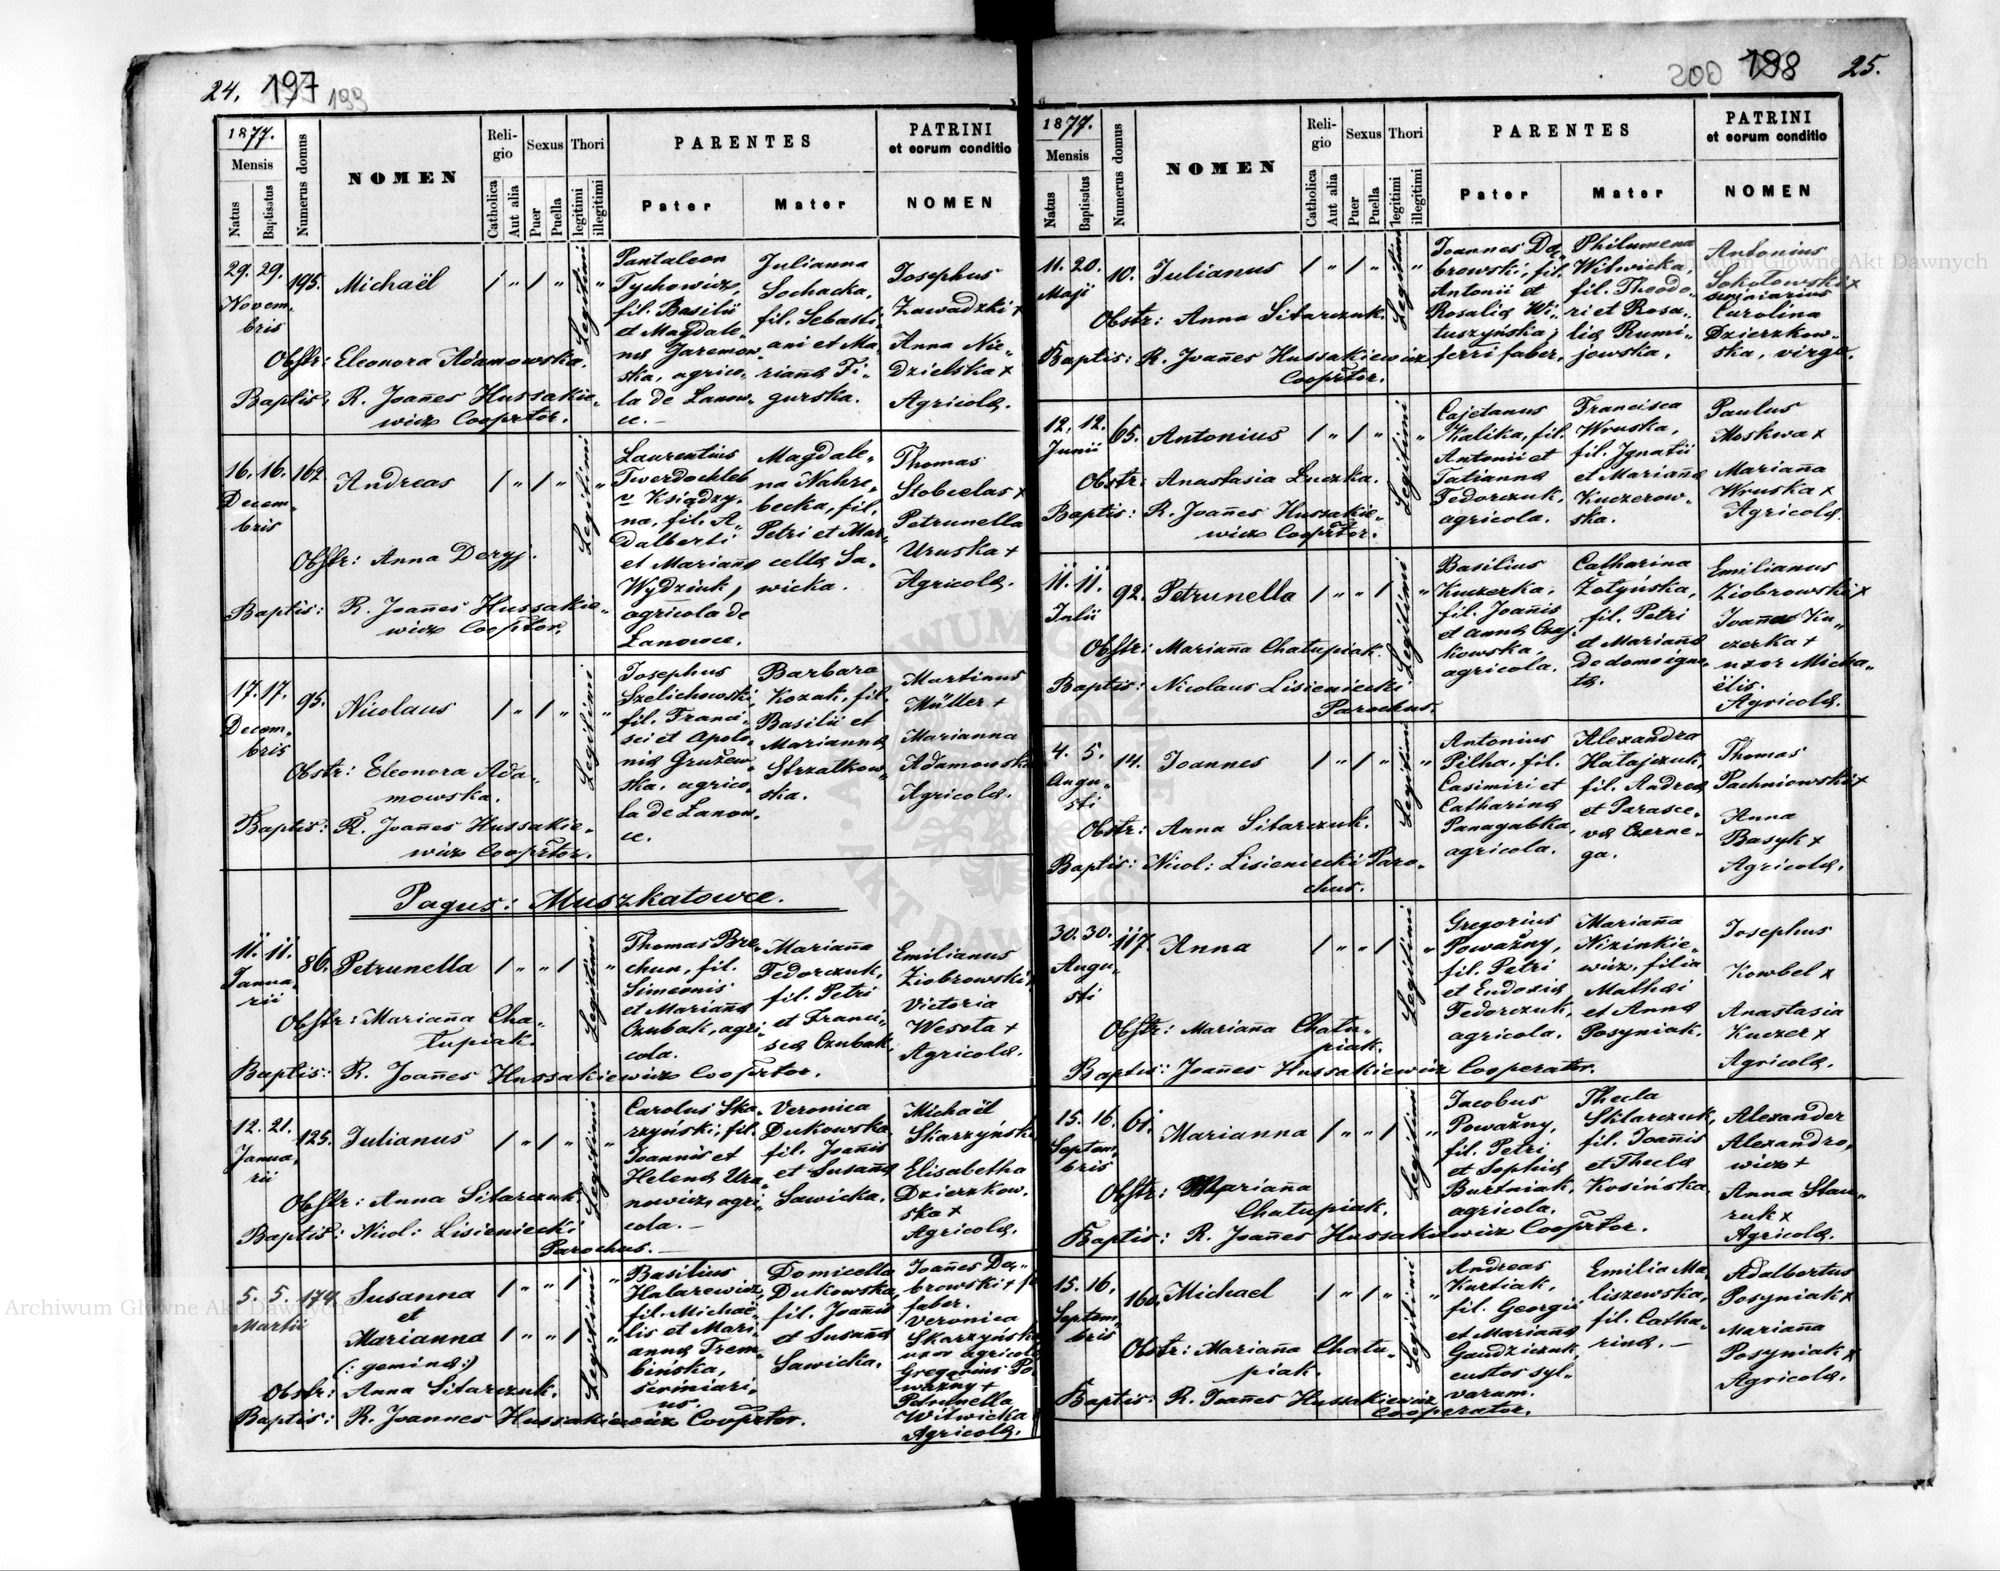 24. 197 199
1877.
Mensis
Natus
Baptisatus
Numerus domus
NOMEN
Religio
Catholica
Aut alia
Sexus
Puer
Puella
Thori
legitimi
illegitimi
PARENTES
Pater
Mater
PATRINI
et eorum conditio
NOMEN
29. 29. 195. Michaël / „ / „ Legitimi „
Novem,
bris
Obstr: Eleonora Adamowska.
Baptis: R. Joañes Hussakie,
wicz Cooprtor.
Pantaleon
Tychowicz,
fil. Basilii
et Magdale,
næ Jaremow,
ska, agrico,
la de Łanow,
ce. —
Julianna
Sochacka,
fil. Sebasti,
ani et Ma,
riannæ Fi,
gurska.
Josephus
Zawadzki +
Anna Nie,
dzielska x
Agricolæ.
16. 16. 162. Andreas / „ / „ Legitimi „
Decem,
bris
Obstr: Anna Deryj.
Baptis: R. Joañes Hussakie,
wicz Cooprtor.
Laurentius
Twerdochleb
v Książy,
na, fil. A,
dalberti
et Mariannæ
Wydziuk,
agricola de
Łanowce.
Magdale,
na Nahre,
becka, fil.
Petri et Mar,
cellæ Sa,
wicka.
Thomas
Stobielas x
Petrunella
Uruska +
Agricolæ.
17. 17. 95. Nicolaus / „ / „ Legitimi „
Decem,
bris
Obstr: Eleonora Ada,
mowska.
Baptis: R. Joañes Hussakie,
wicz Cooprtor.
Josephus
Szelichowski,
fil. Franci,
sci et Apolo,
niæ Gružew,
ska, agrico,
la de Łanow,
ce.
Barbara
Kozak, fil.
Basilii et
Mariannæ
Strzałkow,
ska.
Martinus
Müller +
Marianna
Adamowska
Agricolæ.
Pagus: Muszkatowce.
11. 11. 86. Petrunella / „ „ / Legitimi „
Janua,
rii
Obstr: Mariaña Cha,
łupiak.
Baptis: R. Joañes Hussakiewicz Cooprtor.
Thomas Bre,
chun, fil.
Simeonis
et Mariañæ
Czubak, agri,
cola.
Mariaña
Fedorczuk,
fil. Petri
et Franci,
scæ Czubak.
Emilianus
Ziobrowski x
Victoria
Wesoła +
Agricolæ.
12. 21. 125. Julianus / „ / „ Legitimi „
Janua,
rii
Obstr: Anna Sitarczuk.
Baptis: Nicol: Lisieniecki
Parochus. —
Carolus Ska,
rzyński, fil.
Joannis et
Helenæ Ura,
nowicz, agri,
cola. —
Veronica
Dukowska
fil. Joañis
et Susañæ
Sawicka.
Michaël
Skarzyński
Elisabetha
Dzierzkow,
ska +
Agricolæ.
5. 5. 174. Susanna / „ „ / Legitimi „
Martii
et
Marianna / „ „ / „
(: geminæ :)
Obstr: Anna Sitarczuk.
Baptis: R. Joannes Hussakiewicz Cooprtor.
Basilius
Halarewicz,
fil. Michaë,
lis et Mari,
annæ Trem,
bińska,
scriniari,
us.
Domicella
Dukowska,
fil. Joañis
et Susañæ
Sawicka.
Joañes Da,
browski +
faber.
Veronica
Skarzyńska
uxor agricolæ
Gregorius Po,
ważny +
Petrunella
Witwicka
Agricolæ.
198 25.
1877.
Mensis
Natus
Baptisatus
Numerus domus
NOMEN
Religio
Catholica
Aut alia
Sexus
Puer
Puella
Thori
legitimi
illegitimi
PARENTES
Pater
Mater
PATRINI
et eorum conditio
NOMEN
11. 20. 10. Julianus / „ / „ Legitimi „
Maji
Obstr: Anna Sitarczuk.
Baptis: R. Joañes Hussakiewicz
Cooprtor.
Joannes Da,
browski, fil.
Antonii et
Rosaliæ Wi,
tuszyńska,
ferri faber,
Philumena
Witwicka,
fil. Theodo,
ri et Rosa,
liæ Rumi,
jowska.
Antonius
Sokołowski x
scriniarius
Carolina
Dzierzkow,
ska, virgo.
12. 12. 65. Antonius / „ / „ Legitimi „
Junii
Obstr: Anastasia Łuczka.
Baptis: R. Joañes Hussakie,
wicz Cooprtor.
Cajetanus
Kalika, fil.
Antonii et
Tatiannæ
Fedorczuk,
agricola.
Francisca
Wruska,
fil. Ignatii
et Mariañæ
Kuczerow,
ska.
Paulus
Moskwa x
Mariaña
Wruska x
Agricolæ.
11. 11. 92. Petrunella / „ „ / Legitimi „
Julii
Obstr: Mariaña Chałupiak.
Baptis: Nicolaus Lisieniecki
Parochus.
Basilius
Kuczerka,
fil. Joañis
et Annæ Czaj,
kowska,
agricola.
Catharina
Żołyńska,
fil. Petri
et Mariañæ
de domo igno,
ta.
Emilianus
Ziobrowski x
Joaña Ku,
czerka +
uxor Micha,
ëlis.
Agricolæ.
4. 5. 14. Joannes / „ / „ Legitimi „
Augu,
sti
Obstr: Anna Sitarczuk.
Baptis: Nicol: Lisieniecki Paro,
chus.
Antonius
Pilha, fil.
Casimiri et
Catharinæ
Panagabka,
agricola.
Alexandra
Hatajczuk,
fil. Andreæ
et Parasce,
væ Czerne,
ga.
Thomas
Pachniowski x
Anna
Basyk +
Agricolæ.
30. 30. 117. Anna / „ „ / Legitimi „
Augu,
sti
Obstr: Mariaña Chału,
piak.
Baptis: Joañes Hussakiewicz Cooperator.
Gregorius
Poważny,
fil. Petri
et Eudoxiæ
Fedorczuk,
agricola.
Mariaña
Nizinkie,
wicz, filia
Mathæi
et Annæ
Posyniak.
Josephus
Kowbel x
Anastasia
Kuczer x
Agricolæ.
15. 16. 61. Marianna / „ „ / Legitimi „
Septem,
bris
Obstr: Mariaña
Chałupiak.
Baptis: R. Joañes Hussakiewicz Cooprtor.
Jacobus
Poważny,
fil. Petri
et Sophiæ
Burtniak,
agricola.
Thecla
Sklarczuk,
fil. Joañis
et Theclæ
Kosińska.
Alexander
Alexandro,
wicz +
Anna Stau,
ruk x
Agricolæ.
15. 16. 160. Michael / „ / „ Legitimi „
Septem,
bris
Obstr: Mariaña Chału,
piak.
Baptis: R. Joañes Hussakiewicz
Cooperator.
Andreas
Kurtiak,
fil. Georgii
et Mariañæ
Gaudziczuk,
custos syl,
varum.
Emilia Ma,
liszewska,
fil. Catha,
rinæ. —
Adalbertus
Posyniak x
Mariaña
Posyniak x
Agricolæ.
Archiwum Główne Akt Dawnych
Archiwum Główne Akt Dawnych